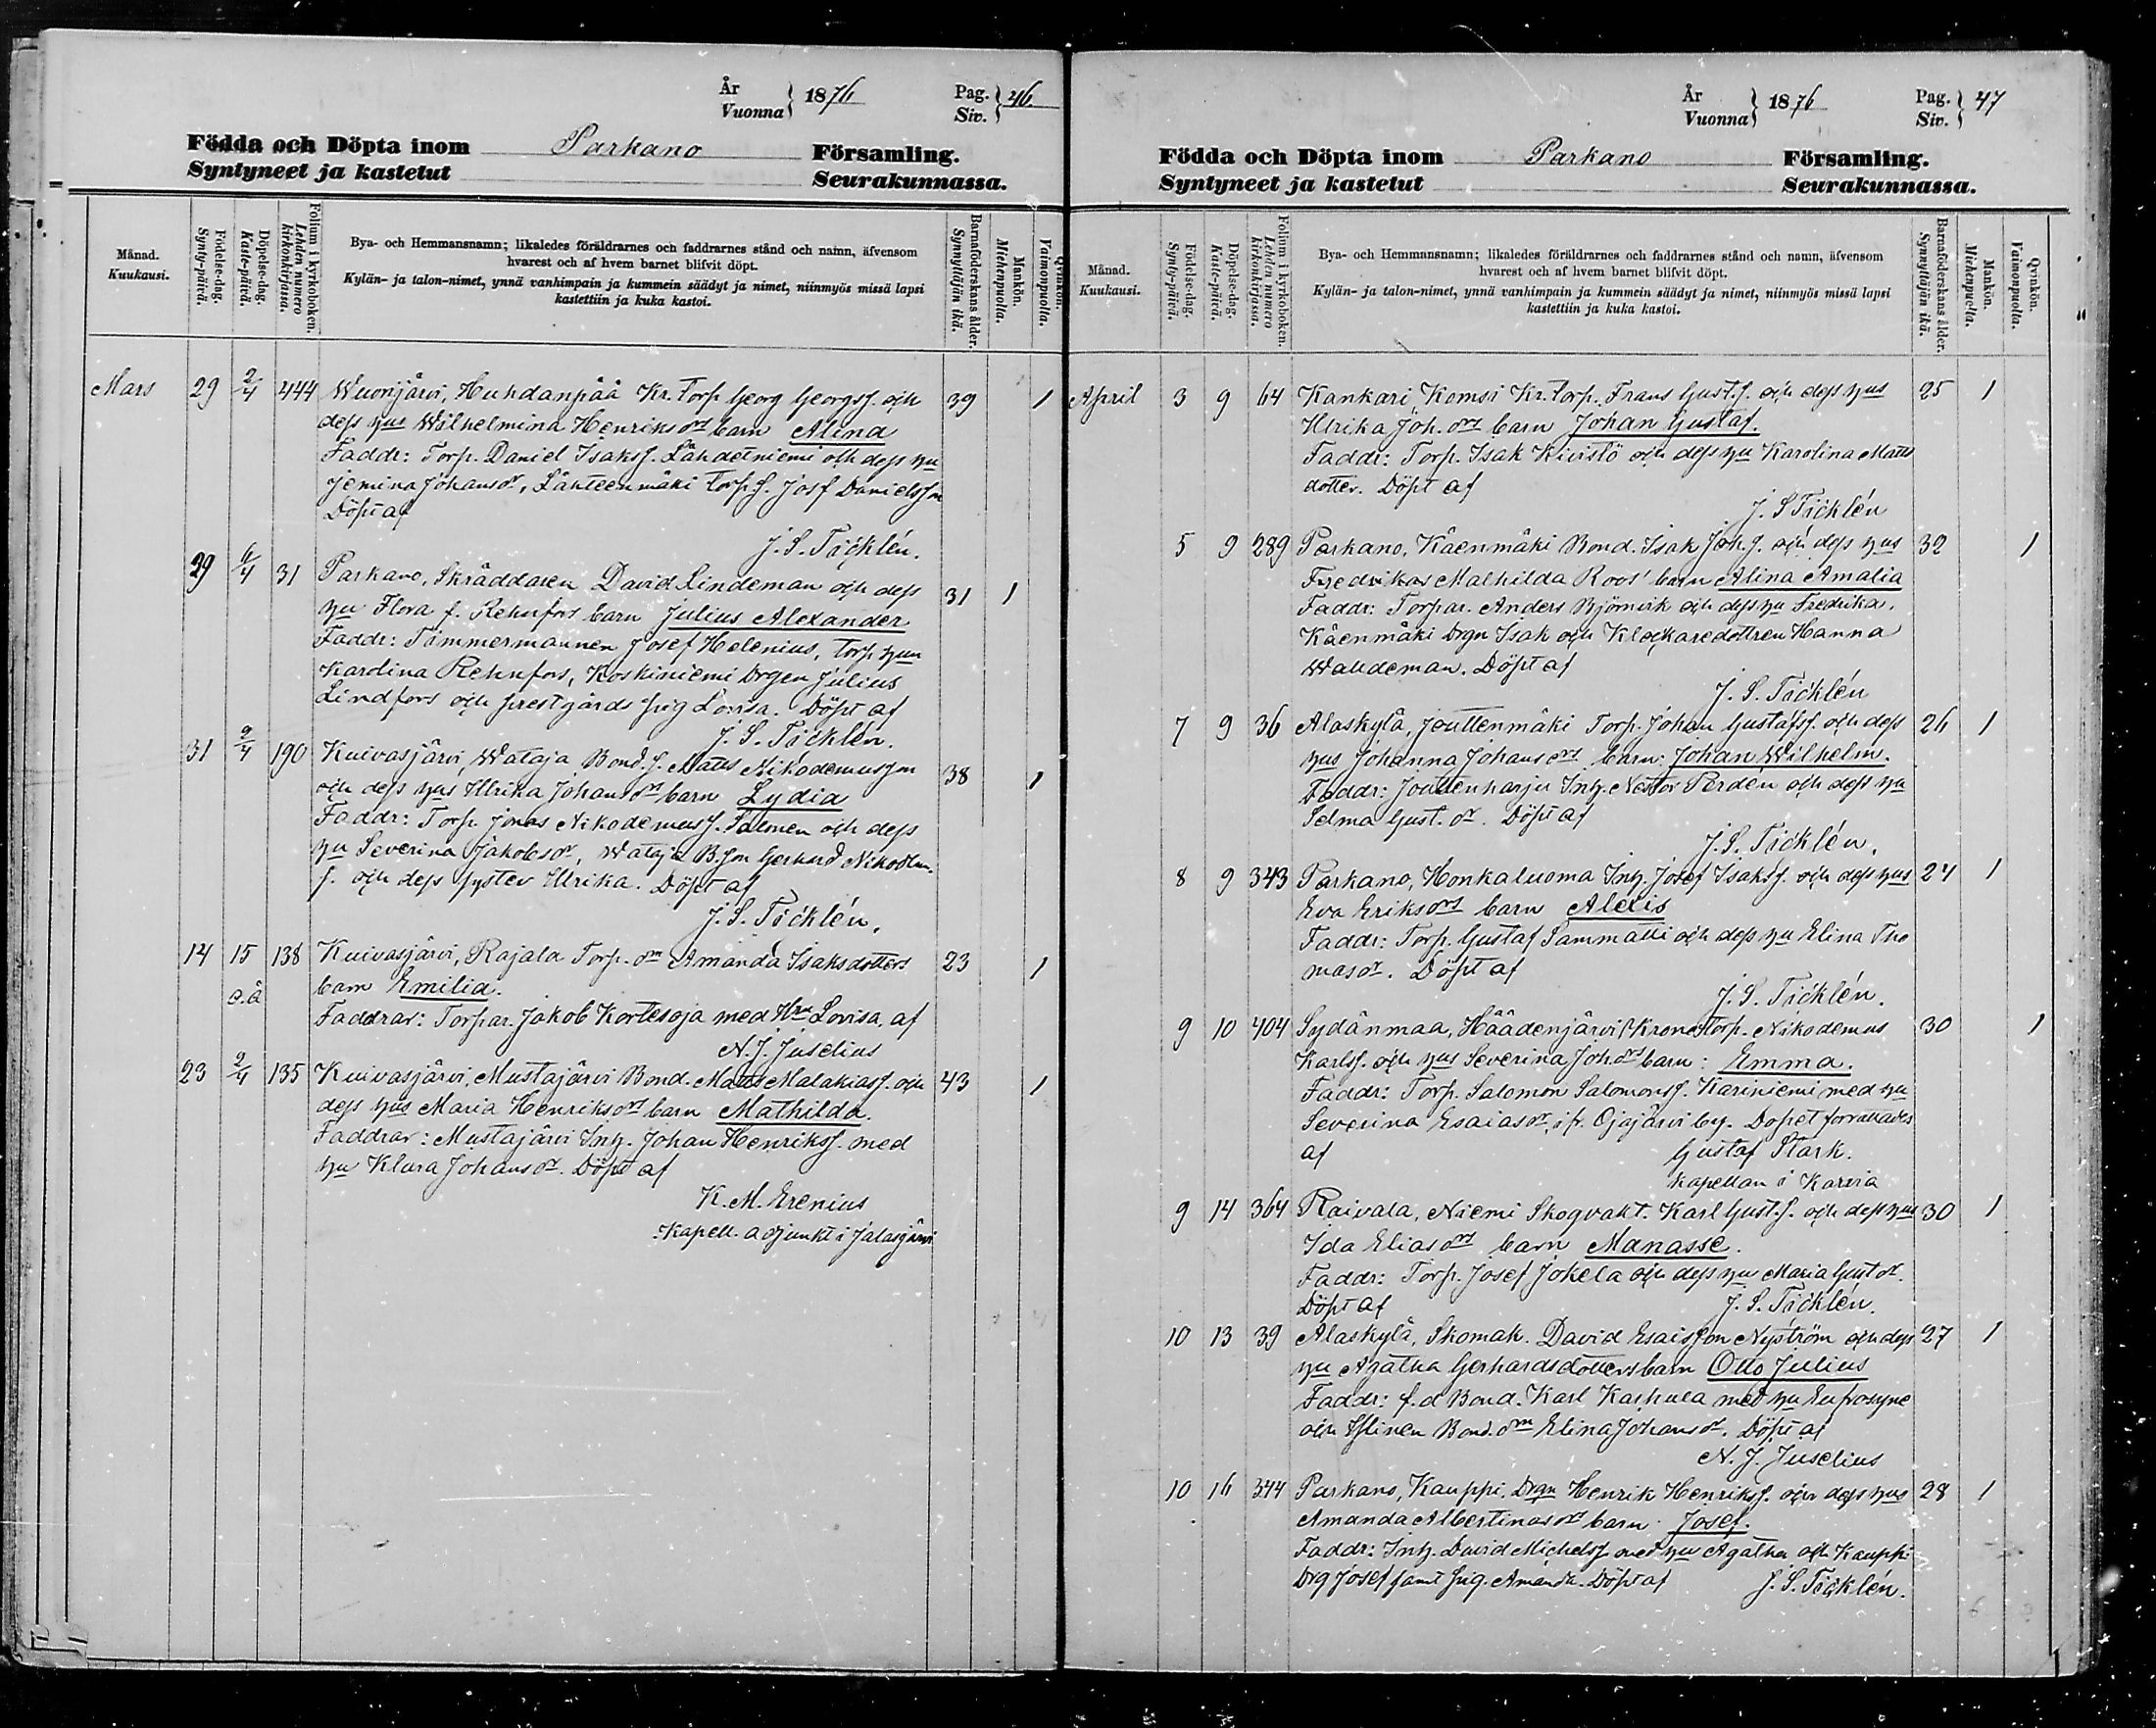 År Vuonna } 1876 Pag. Siv. } 46.
Födda och Döpta inom Parkano Församling.
Syntyneet ja kastetut Seurakunnassa.
Månad. Kuukausi.
Födelse-dag. Synty-päivä.
Döpelse-dag. Kaste-päivä.
Folium i kyrkoboken. Lehden numero kirkonkirjassa.
Bya- och Hemmansnamn; likaledes föräldrarnes och faddrarnes stånd och namn, äfvensom
hvarest och af hvem barnet blifvit döpt.
Kylän- ja talon-nimet, ynnä vanhimpain ja kummein säädyt ja nimet, niinmyös missä lapsi
kastettiin ja kuka kastoi.
Barnaföderskans ålder. Synnyttäjän ikä.
Mankön. Miehenpuolla.
Qvinkön. Vaimonpuolla.
Mars 29 2/4 444 Wuorijärvi, Huhdanpää Kr. Torp Georg Georgsf. och 39 1
dess hus Wilhelmina Henriksdrs barn Alina
Faddr: Torp. Daniel Isaksf. Lähdetniemi och dess hu
Jemina Johansdr, Lähteenmäki Torp.s. Josf Danielsson
Döpt af
J. S. Täcklén.
29 6/4 31 Parkano, Skräddaren David Lindeman och dess 31 1
hu Flora f. Rehnfors barn Julius Alexander
Faddr: Timmermannen Josef Helenius, Torp hun
Karolina Rehnfors, Koskiniemi Drgen Julius
Lindfors och prestgårds pig Lovisa. Döpt af
J. S. Täcklén.
31 9/4 190 Kuivasjärvi, Wataja Bond.s. Matts Nikodemusson 38 1
och dess hus Ulrika Johansdrs barn Lydia
Faddr: Torp. Jonas Nikodemusf. Salmen och dess
hu Severina Jakobsdr, Wataja B.son Gerhard Nikodem.
s. och dess syster Ulrika. Döpt af
J. S. Täcklén.
14 15 138 Kuivasjärvi, Rajala Torp. drn Amanda Isaksdotters 23 1
s.å barn Emilia.
Faddrar: Torpar. Jakob Kortesoja med Hru Lovisa, af
N. J. Juselius
23 2/4 135 Kuivasjärvi, Mustajärvi Bond. Matts Malakiasf. och 43 1
dess hus Maria Henriksdrs barn Mathilda.
Faddrar: Mustajärvi Inh. Johan Henriksf. med
hu Klara Johansdr. Döpt af
K. M. Erenius
Kapell. adjunkt i Jalasjärvi
År Vuonna } 1876 Pag. Siv. } 47
Födda och Döpta inom Parkano Församling.
Syntyneet ja kastetut Seurakunnassa.
Månad. Kuukausi.
Födelse-dag. Synty-päivä.
Döpelse-dag. Kaste-päivä.
Folium i kyrkoboken. Lehden numero kirkonkirjassa.
Bya- och Hemmansnamn; likaledes föräldrarnes och faddrarnes stånd och namn, äfvensom
hvarest och af hvem barnet blifvit döpt.
Kylän- ja talon-nimet, ynnä vanhimpain ja kummein säädyt ja nimet, niinmyös missä lapsi
kastettiin ja kuka kastoi.
Barnaföderskans ålder. Synnyttäjän ikä.
Mankön. Miehenpuolla.
Qvinkön. Vaimonpuolla.
April 3 9 64 Kankari Komsi Kr. torp. Frans Gust.s. och dess hus 25 1
Ulrika Joh. drs barn Johan Gustaf.
Faddr: Torp. Isak Kivistö och dess hu Karolina Matts
dotter. Döpt af
J. S Täcklén
5 9 289 Parkano, Käenmäki Bond. Isak Joh.s. och dess hus 32 1
Fredrikas Mathilda Roos' barn Alina Amalia
Faddr: Torpar. Anders Björnvik och dess hu Fredrika.
Käenmäki Drgn Isak och Klockaredottren Hanna
Waldeman. Döpt af
J. S. Täcklén
7 9 36 Alaskylä, Jouttenmäki Torp. Johan Gustafsf. och dess 26 1
hus Johanna Johansdrs barn: Johan Wilhelm.
Faddr: Jouttenharju Inh. Nestor Perdén och dess hu
Selma Gust. dr. Döpt af
J. S. Täcklén.
8 9 343 Parkano, Honkaluoma Inh. Josef Isaksf. och dess hus 24 1
Eva Eriksdrs barn Alexis
Faddr: Torp. Gustaf Sammatti och dess hu Elina Tho
masdr. Döpt af
J. S. Täcklén.
9 10 404 Sydänmaa, Häädenjärvi Kronotorp. Nikodemus 30 1
Karlsf. och hus Severina Joh.drs barn: Emma.
Faddr: Torp. Salomon Salomonsf. Kariniemi med hu
Severina Esaiasdr, ifr. Ojajärvi by. Dopet förrättades
af Gustaf Stark.
kapellan i Karvia
9 14 364 Raivala, Niemi Skogvakt. Karl Gust.s. och dess hus 30 1
Ida Eliasdrs barn Manasse.
Faddr: Torp. Josef Jokela och dess hu Maria Gustdr.
Döpt af J. S. Täcklén.
10 13 39 Alaskylä, Skomak. David Esaisson Nyström och dess 27 1
hu Agatha Gerhardsdotters barn Otto Julius
Faddr: f.d Bond. Karl Kaskula med hu Eufrosyne
och Yllinen Bond. drn Elina Johansdr. Döpt af
N. J. Juselius
10 16 344 Parkano, Kauppi. Drgn Henrik Henriksf. och dess hus 28 1
Amanda Albertinasdrs barn Josef.
Faddr: Inh. David Michelsf. med hu Agatha och Kauppi
Drg Josef samt pig. Amanda. Döpt af J. S. Täcklén.